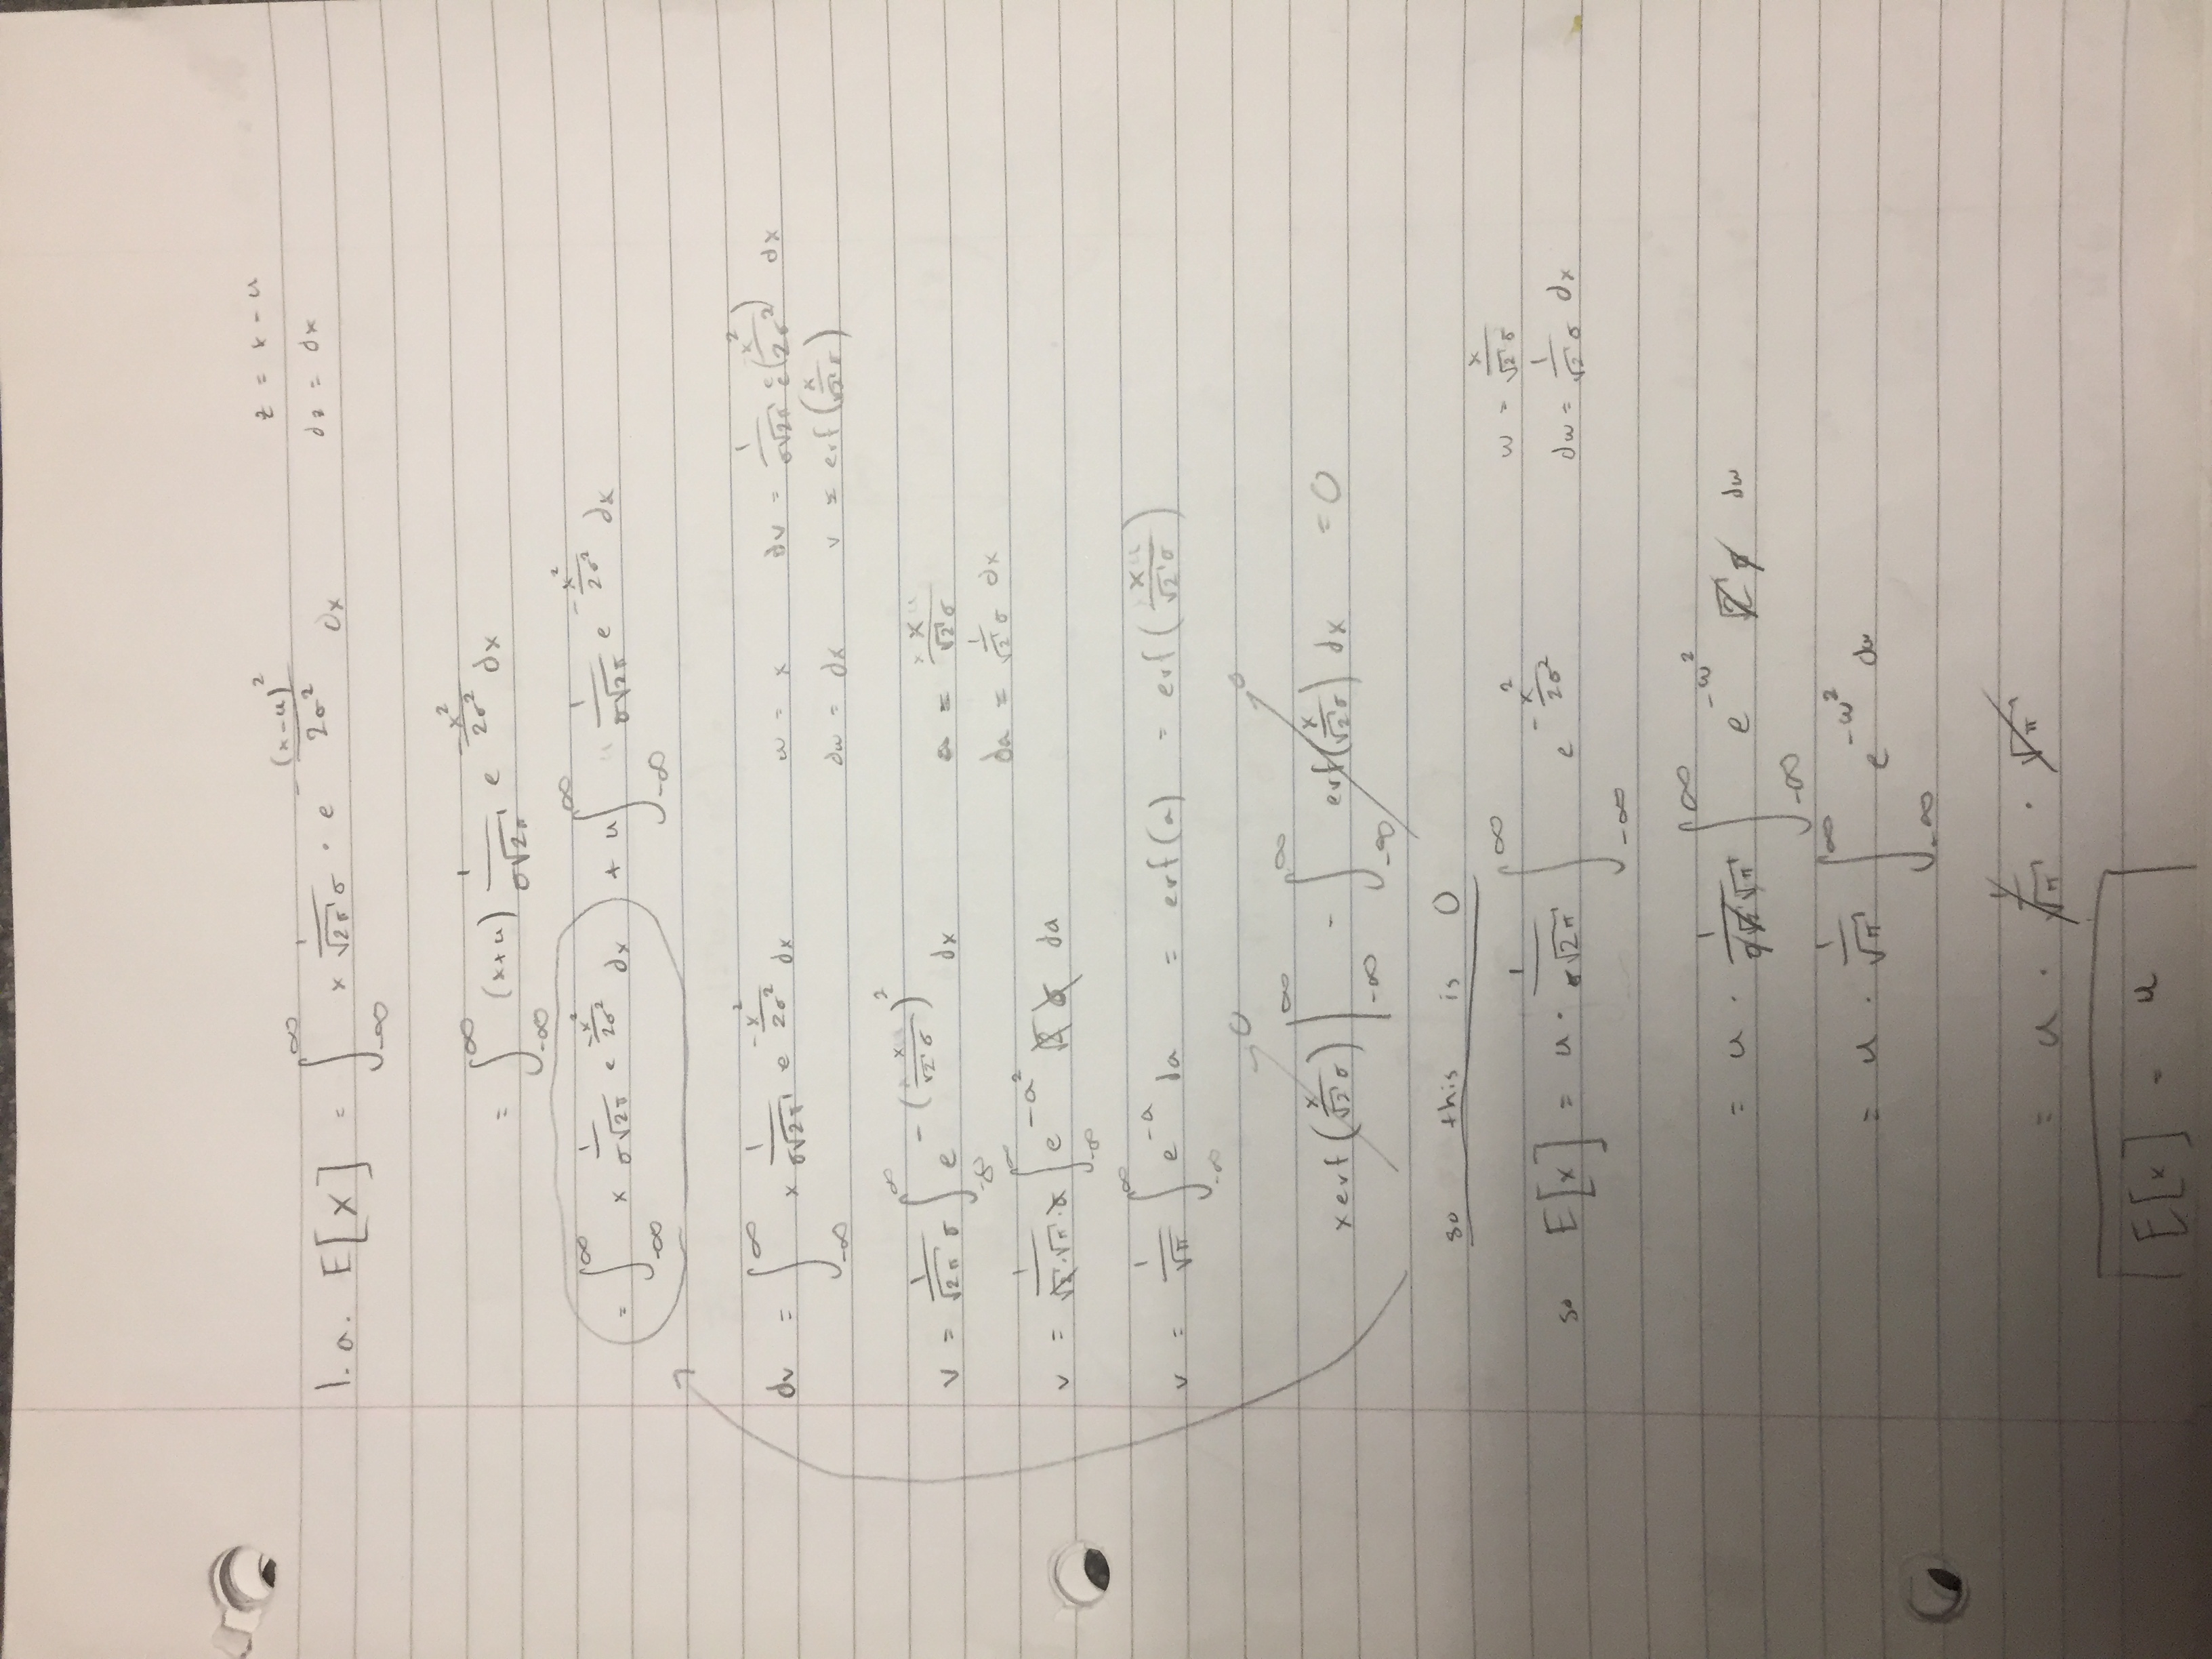 1. a. E[X] = ∫_{-∞}^{∞} x 1/(√2π σ) · e^{-(x-u)²/2σ²} dx    z = x - u
dz = dx
= ∫_{-∞}^{∞} (x+u) 1/(σ√2π) e^{-x²/2σ²} dx
= ∫_{-∞}^{∞} x 1/(σ√2π) e^{-x²/2σ²} dx + u ∫_{-∞}^{∞} 1/(σ√2π) e^{-x²/2σ²} dx
dv = ∫_{-∞}^{∞} x 1/(σ√2π) e^{-x²/2σ²} dx    w = x    dv = 1/(σ√2π) e^{-(x²/2σ²)} dx
dw = dx    v = erf(x/(√2 σ))
v = 1/(√2π σ) ∫_{-∞}^{∞} e^{-(x/(√2 σ))²} dx    a = x/(√2 σ)
da = 1/(√2 σ) dx
v = 1/(√2·√π·σ) ∫_{-∞}^{∞} e^{-a²} √2 σ da
v = 1/√π ∫_{-∞}^{∞} e^{-a} da = erf(a) = erf(x/(√2 σ))
0    0
x erf(x/(√2 σ)) |_{-∞}^{∞} - ∫_{-∞}^{∞} erf(x/(√2 σ)) dx = 0
so this is 0
so E[x] = u · 1/(σ√2π) ∫_{-∞}^{∞} e^{-x²/2σ²}    w = x/(√2 σ)
dw = 1/(√2 σ) dx
= u · 1/(σ√2√π) ∫_{-∞}^{∞} e^{-w²} √2 σ dw
= u · 1/√π ∫_{-∞}^{∞} e^{-w²} dw
= u · 1/√π · √π
E[x] = u